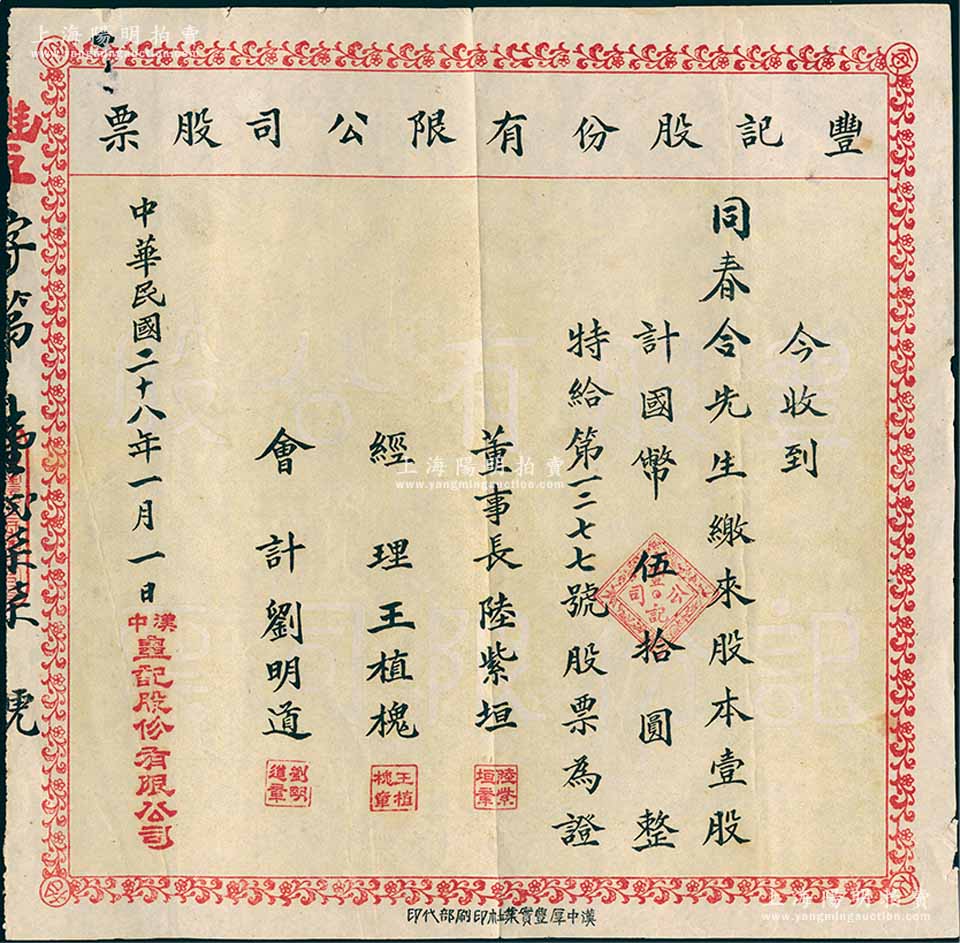 豐記股份有限公司股票
今收到
同春合先生繳來股本壹股
計國幣伍拾圓整
特給第一二七七號股票為證
董事長陸紫垣
陸紫垣章
經理王植槐
王植槐章
會計劉明道
劉明道章
中華民國二十八年一月一日
漢中
豐記股份有限公司
豐記公司
字第壹貳柒柒號
漢中厚豐實業社印刷部代印
上海陽明拍賣
www.yangmingauction.com
上海陽明拍賣
www.yangmingauction.com
上海陽明拍賣
www.yangmingauction.com